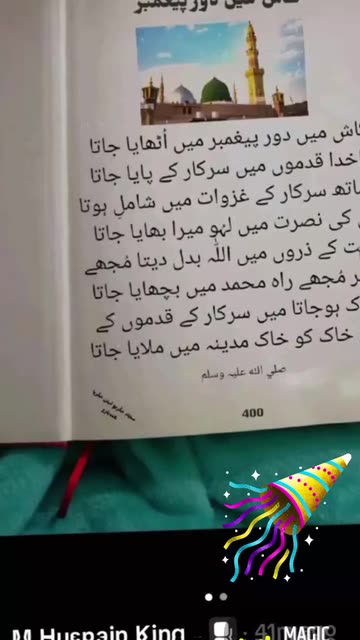 میں دور پیغمبر
کاش میں دور پیغمبر میں اُٹھایا جاتا
خدا قدموں میں سرکار کے پایا جاتا
ساتھ سرکار کے غزوات میں شامل ہوتا
کی نصرت میں لہو میرا بہایا جاتا
کے ذروں میں اللّٰہ بدل دیتا مُجھے
مُجھے راہ محمد میں بچھایا جاتا
ہوجاتا میں سرکار کے قدموں کے
خاک کو خاک مدینہ میں ملایا جاتا
صلي الله عليه وسلم
400
M Hussain King
MAGIC